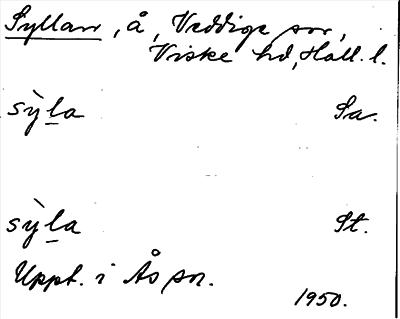 Syllan, å, Veddige sn,
Viske hd, Hall. l.
sỳl̲a Sa.
sỳl̲a St.
Uppt. i Ås sn.
1950.